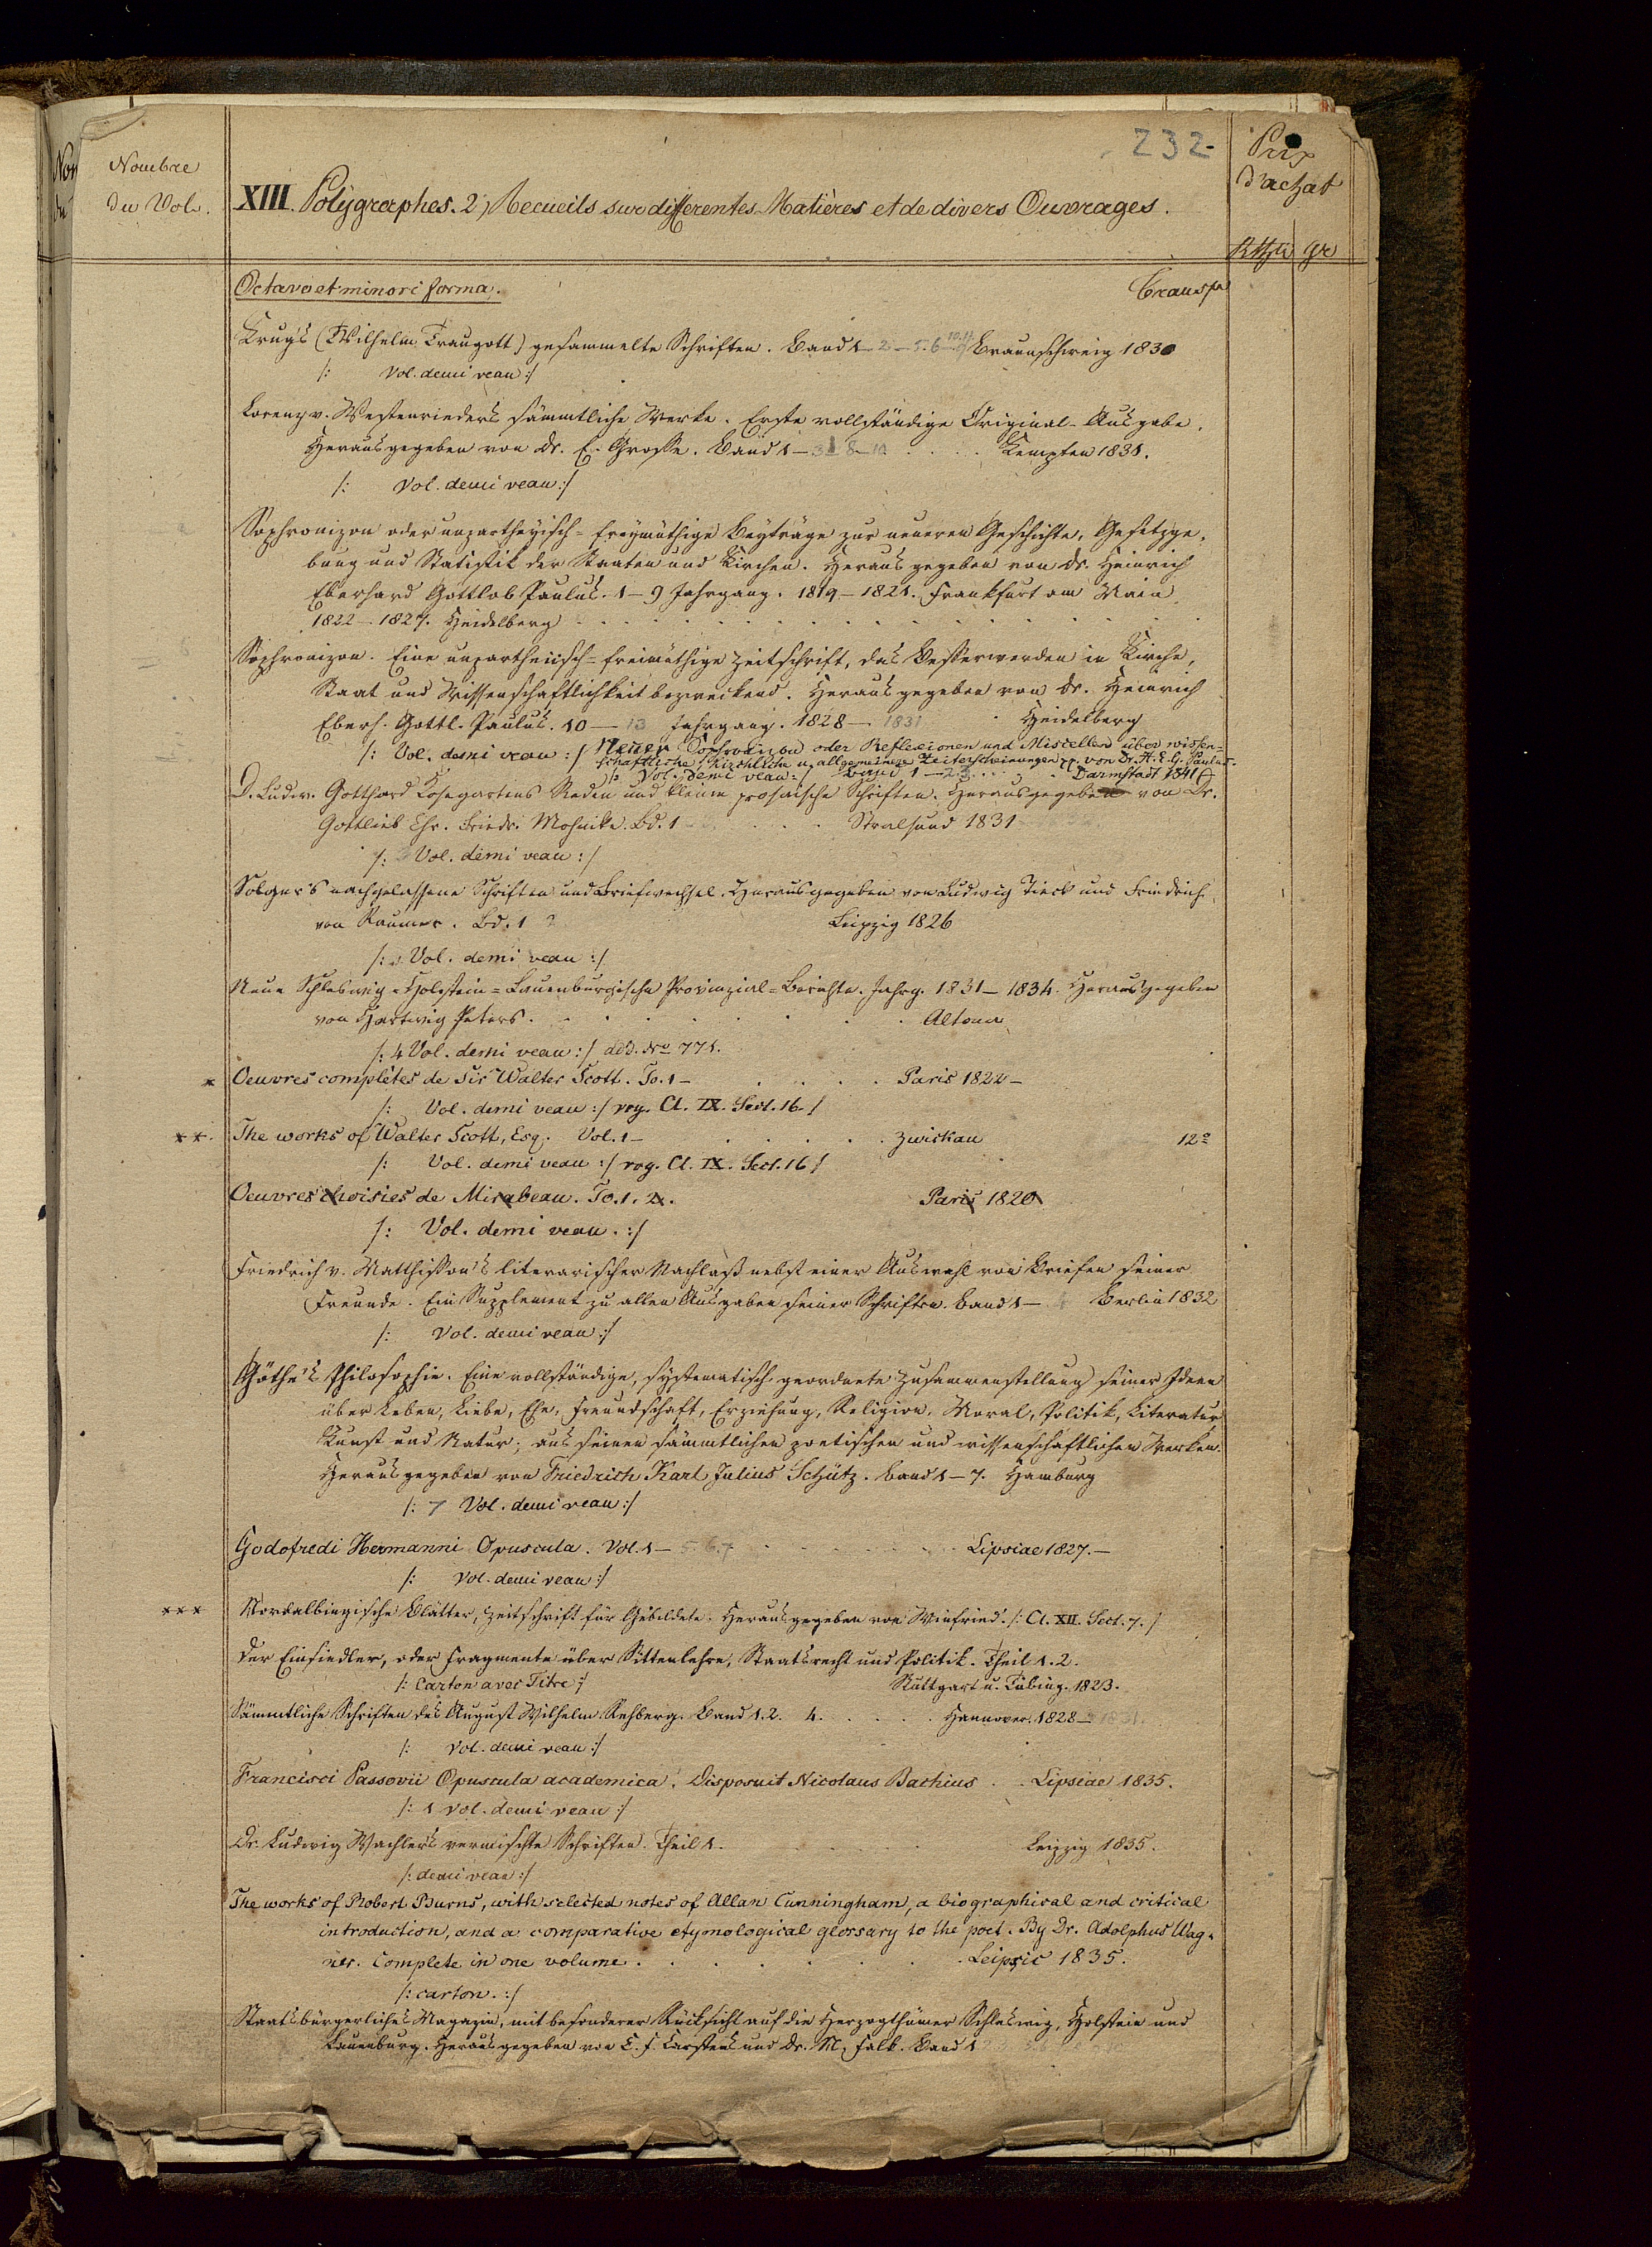 232
Nombre
du Vol.
XIII. Polÿgraphes. 2) Recueils sur differentes Matières et de divers Ouvrages.
Prix
d'achat
Rthlr gr
Octavo et minori forma.
Transp
Krug's (Wilhelm Traugott) gesammelte Schriften. Band 1-2-5.6- Braunschweig 1830
/: Vol. demi veau :/
Lorenz v. Westenrieder's sämmtliche Werke. Erste vollständige Original-Ausgabe.
Herausgegeben von Dr. E. Grosse. Band 1- Kempten 1831.
/: Vol. demi veau :/
Sophronizon oder unpartheyisch-freymüthige Beyträge zur neueren Geschichte, Gesetzge-
bung und Statistik der Staaten und Kirchen. Herausgegeben von Dr. Heinrich
Eberhard Gottlob Paulus. 1-9 Jahrgang. 1819-1821. Frankfurt am Main
1822-1827. Heidelberg
Sophronizon. Eine unpartheiisch-freimüthige Zeitschrift, das Besserwerden in Kirche,
Staat und Wissenschaftlichkeit bezweckend. Herausgegeben von Dr. Heinrich
Eberh. Gottl. Paulus. 10-13 Jahrgang. 1828-1831 Heidelberg
/: Vol. demi veau :/ Neuer Sophronizon oder Reflexionen und Miscellen über wissen-
schaftliche, kirchliche u. allgemeinere Zeiterscheinungen pp. von Dr. H. E. G. Paulus.
/: Vol. demi veau :/ Band 1-2.3 Darmstadt 1841
D. Ludw. Gotthard Kosegartens Reden und kleine prosaische Schriften. Herausgegeben von Dr.
Gottlieb Chr. Friedr. Mohnike. Bd. 1 Stralsund 1831
/: 3 Vol. demi veau :/
Solger's nachgelassene Schriften und Briefwechsel. Herausgegeben von Ludwig Tieck und Friedrich
von Raumer. Bd. 1 2 Leipzig 1826
/: 2 Vol. demi veau :/
Neue Schleswig-Holstein-Lauenburgische Provinzial-Berichte. Jahrg. 1831-1834. Herausgegeben
von Hartwig Peters. Altona
/: 4 Vol. demi veau :/ add. No 771.
* Oeuvres complètes de Sir Walter Scott. To. 1- Paris 1822-
/: Vol. demi veau :/ rog. Cl. IX. Sect. 16. /
**. The works of Walter Scott, Esq. Vol. 1- Zwickau 12º
/: Vol. demi veau :/ rog. Cl. IX. Sect. 16 /
Oeuvres choisies de Mirabeau. To. 1. 2. Paris 1820
/: Vol. demi veau. :/
Friedrich v. Matthisson's literarischer Nachlaß nebst einer Auswahl von Briefen seiner
Freunde. Ein Supplement zu allen Ausgaben seiner Schriften. Band 1-4 Berlin 1832
/: Vol. demi veau :/
Göthe's Philosophie. Eine vollständige, systematisch geordnete Zusammenstellung seiner Ideen
über Leben, Liebe, Ehe, Freundschaft, Erziehung, Religion, Moral, Politik, Literatur
Kunst und Natur; aus seinen sämmtlichen poetischen und wissenschaftlichen Werken.
Herausgegeben von Friedrich Karl Julius Schütz. Band 1-7. Hamburg
/: 7 Vol. demi veau :/
Godofredi Hermanni Opuscula. Vol. 1-5.6.7 Lipsiae 1827.-
/: Vol. demi veau :/
*** Nordalbingische Blätter, Zeitschrift für Gebildete. Herausgegeben von Winfried. /: Cl. XII. Sect. 7. /
Der Einsiedler, oder Fragmente über Sittenlehre, Staatsrecht und Politik. Theil 1. 2.
/: Carton avec Titre :/ Stuttgart u. Tübing. 1823.
Sämmtliche Schriften des August Wilhelm Rehberg. Band 1. 2. 4. Hannover. 1828-1831.
/: Vol. demi veau :/
Francisci Passovii Opuscula academica. Disposuit Nicolaus Bachius Lipsiae 1835.
/: 1 Vol. demi veau :/
Dr. Ludwig Wachler's vermischte Schriften. Theil 1. Leipzig 1835.
/: demi veau :/
The works of Robert Burns, with selected notes of Allan Cunningham, a biographical and critical
introduction, and a comparative etymological glossary to the poet. By Dr. Adolphus Wag-
ner. Complete in one volume. Leipsic 1835.
/: carton. :/
Staatsbürgerliches Magazin, mit besonderer Rücksicht auf die Herzogthümer Schleswig, Holstein und
Lauenburg. Herausgegeben von C. F. Carstens und Dr. N. Falk. Band 1